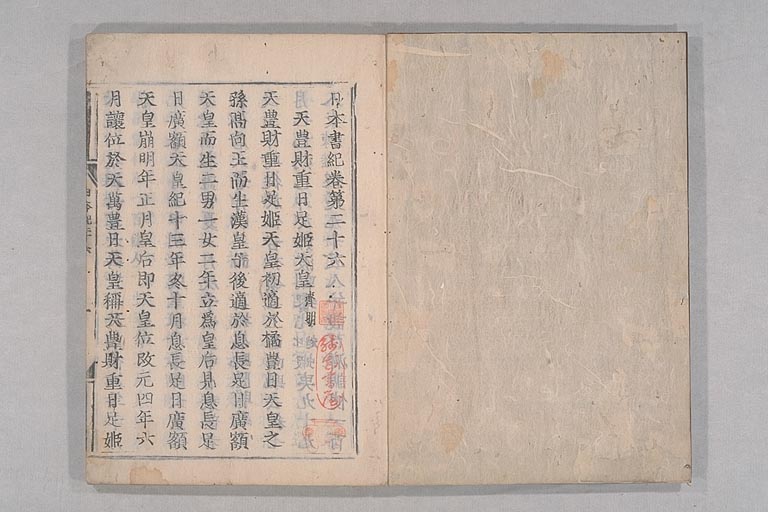 日本書紀卷第二十六
天豊財重日足姬天皇 齊明
天豊財重日足姬天皇初適於橘豊日天皇之
孫高向王而生漢皇子後適於息長足日廣額
天皇而生二男一女二年立爲皇后見息長足
日廣額天皇紀十三年冬十月息長足日廣額
天皇崩明年正月皇后即天皇位改元四年六
月讓位於天萬豊日天皇稱天豊財重日足姬